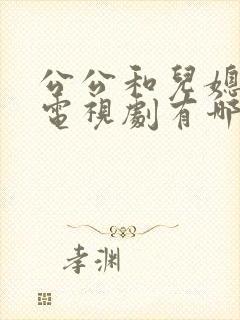 公公和兒媳
電視劇有哪
孝渊